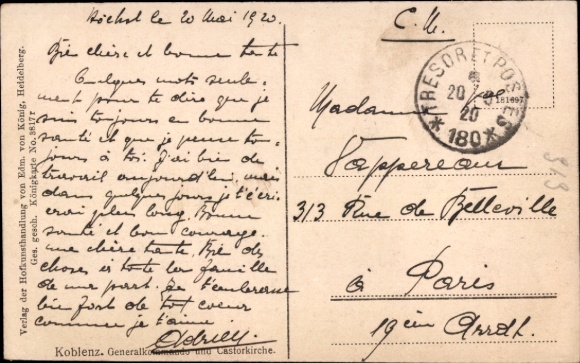 Höchst le 20 Mai 1920.
Bien chère et bonne tante
Quelques mots seule-
ment pour te dire que je
suis toujours en bonne
santé et que je pense tou-
jours à toi. J'ai bien du
travail aujourd'hui, mais
dans quelques jours je t'écri-
rai plus long. Bonne
santé et bon courage.
ma chère tante. Bien des
choses à toute la famille
de ma part. Je t'embrasse
bien fort de tout coeur
comme je t'aime.
C.M.
TRESOR ET POSTES
20 5
20
*180*
181697
Madame
Vappereau
313 Rue de Belleville
à Paris
19èm Arrdt.
Verlag der Hofkunsthandlung von Edm. von König, Heidelberg.
Ges. gesch. Königkarte No. 38177
Koblenz. Generalkommando und Castorkirche.